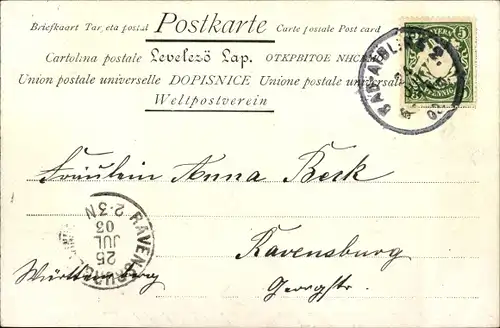 Briefkaart Tarjeta postal Postkarte Carte postale Post card
Cartolina postale Levelező Lap. ОТКРЫТОЕ ПИСЬМО
Union postale universelle DOPISNICE Unione postale universale
Weltpostverein
BAYERN
5
PFENNIG
BAD AIBLING
Fräulein Anna Berk
Ravensburg
Georgstr.
Württemberg
RAVENSBURG
25
JUL
03
2-3N